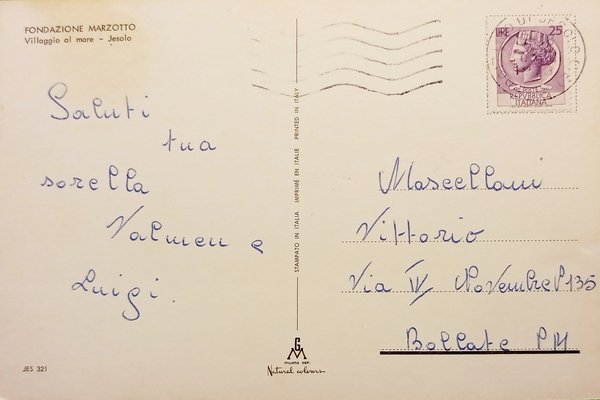 FONDAZIONE MARZOTTO
Villaggio al mare - Jesolo
Saluti
tua
sorella
Valmen e
Luigi.
JES 321
STAMPATO IN ITALIA IMPRIMÉ EN ITALIE PRINTED IN ITALY
GM
MILANO DEP.
Natural colours
LIRE 25
REPVBBLICA
ITALIANA
Mascellani
Vittorio
Via IV Novembre N° 135
Bollate PM